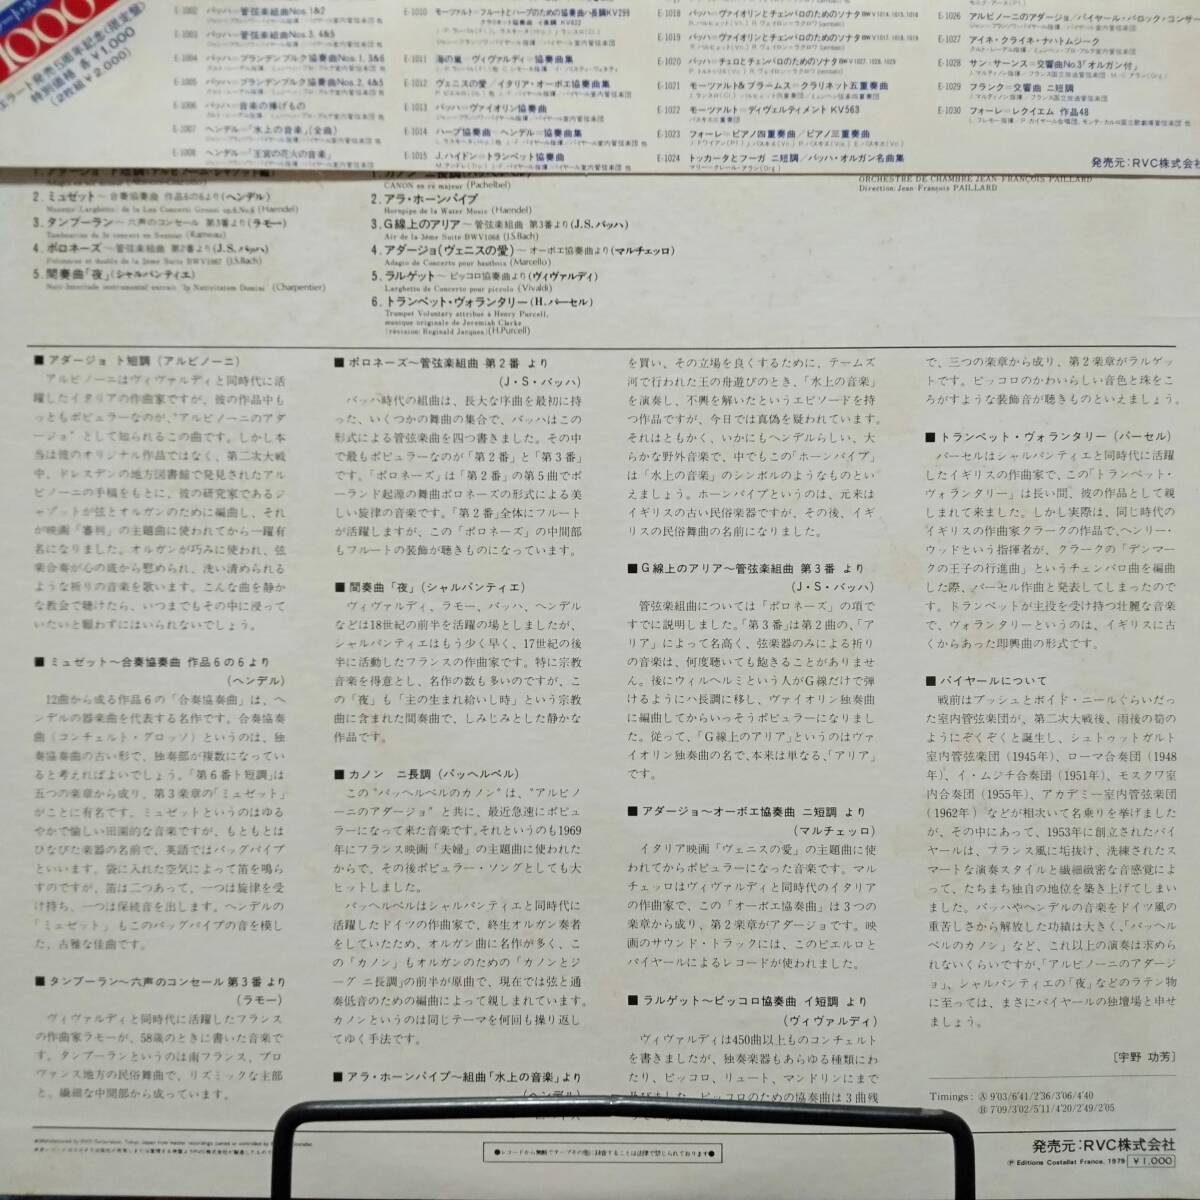 エラート発売5周年記念《限定盤》
特別価格 各¥1,000
(2枚組¥2,000)
E-1002 バッハ=管弦楽組曲Nos.1&2
E-1003 バッハ=管弦楽組曲Nos.3,4&5
E-1004 バッハ=ブランデンブルク協奏曲Nos.1,3&6
E-1005 バッハ=ブランデンブルク協奏曲Nos.2,4&5
E-1006 バッハ=音楽の捧げもの
E-1007 ヘンデル=「水上の音楽」(全曲)
E-1008 ヘンデル=「王宮の花火の音楽」
E-1010 モーツァルト・フルートとハープのための協奏曲ハ長調KV299
クラリネット協奏曲 KV622
E-1011 海の嵐・ヴィヴァルディ=協奏曲集
E-1012 ヴェニスの愛/イタリア・オーボエ協奏曲集
E-1013 バッハ=ヴァイオリン協奏曲
E-1014 ハープ協奏曲 ヘンデル=協奏曲集
E-1015 J.ハイドン=トランペット協奏曲
E-1018 バッハ=ヴァイオリンとチェンバロのためのソナタ
E-1019 バッハ=ヴァイオリンとチェンバロのためのソナタ
E-1020 バッハ=チェロとチェンバロのためのソナタBWV1027,1028,1029
E-1021 モーツァルト&ブラームス=クラリネット五重奏曲
E-1022 モーツァルト=ディヴェルティメント KV563
E-1023 フォーレ=ピアノ四重奏曲/ピアノ三重奏曲
E-1024 トッカータとフーガ ニ短調/バッハ・オルガン名曲集
マリー=クレール・アラン(Org.)
E-1026 アルビノーニのアダージョ/パイヤール・バロック・コンサート
E-1027 アイネ・クライネ・ナハトムジーク
E-1028 サン=サーンス=交響曲No.3「オルガン付」
E-1029 フランク=交響曲 ニ短調
E-1030 フォーレ=レクイエム 作品48
発売元:RVC株式会
ORCHESTRE DE CHAMBRE JEAN FRANÇOIS PAILLARD
Direction: Jean François PAILLARD
1. アダージョ ト短調(アルビノーニ・ジャゾット編)
2. ミュゼット〜合奏協奏曲 作品6の6より(ヘンデル)
3. タンブーラン〜六声のコンセール 第3番より(ラモー)
4. ポロネーズ〜管弦楽組曲 第2番より(J.S.バッハ)
Polonaise et double de la 2ème Suite BWV1067 (J.S.Bach)
5. 間奏曲「夜」(シャルパンティエ)
Nuit-Interlude instrumental extrait "In Nativitatem Domini" (Charpentier)
CANON en ré majeur (Pachelbel)
2. アラ・ホーンパイプ
Hornpipe de la Water Music (Haendel)
3. G線上のアリア〜管弦楽組曲 第3番より(J.S.バッハ)
Air de la 3ème Suite BWV1068 (J.S.Bach)
4. アダージョ(ヴェニスの愛)〜オーボエ協奏曲より(マルチェッロ)
Adagio de Concerto pour hautbois (Marcello)
5. ラルゲット〜ピッコロ協奏曲より(ヴィヴァルディ)
Larghetto de Concerto pour piccolo (Vivaldi)
6. トランペット・ヴォランタリー(H.パーセル)
Trumpet Voluntary attribué à Henry Purcell,
musique originale de Jeremiah Clarke
(révision: Reginald Jacques)(H.Purcell)
■ アダージョ ト短調(アルビノーニ)
アルビノーニはヴィヴァルディと同時代に活
躍したイタリアの作曲家ですが、彼の作品中も
っともポピュラーなのが、“アルビノーニのアダ
ージョ”として知られるこの曲です。しかし本
当は彼のオリジナル作品ではなく、第二次大戦
中、ドレスデンの地方図書館で発見されたアル
ビノーニの手稿をもとに、彼の研究家であるジ
ャゾットが弦とオルガンのために編曲し、それ
が映画「審判」の主題曲に使われてから一躍有
名になりました。オルガンが巧みに使われ、弦
楽合奏が心の底から慰められ、洗い清められる
ような祈りの音楽を歌います。こんな曲を静か
な教会で聴けたら、いつまでもその中に浸って
いたいと願わずにはいられないでしょう。
■ ミュゼット〜合奏協奏曲 作品6の6より
(ヘンデル)
12曲から成る作品6の「合奏協奏曲」は、ヘ
ンデルの器楽曲を代表する名作です。合奏協奏
曲(コンチェルト・グロッソ)というのは、独
奏協奏曲の古い形で、独奏部が複数になってい
ると考えればよいでしょう。「第6番ト短調」は
五つの楽章から成り、第3楽章の「ミュゼット」
がことに有名です。ミュゼットというのはゆる
やかで愉しい田園的な音楽ですが、もともとは
ひなびた楽器の名前で、英語ではバッグパイプ
といいます。袋に入れた空気によって笛を鳴ら
すのですが、笛は二つあって、一つは旋律を受
け持ち、一つは保続音を出します。ヘンデルの
「ミュゼット」もこのバッグパイプの音を模し
た、古雅な佳曲です。
■ タンブーラン〜六声のコンセール 第3番より
(ラモー)
ヴィヴァルディと同時代に活躍したフランス
の作曲家ラモーが、58歳のときに書いた音楽で
す。タンブーランというのは南フランス、プロ
ヴァンス地方の民俗舞曲で、リズミックな主部
と、繊細な中間部から成っています。
■ ポロネーズ〜管弦楽組曲 第2番 より
(J・S・バッハ)
バッハ時代の組曲は、長大な序曲を最初に持
った、いくつかの舞曲の集合で、バッハはこの
形式による管弦楽曲を四つ書きました。その中
で最もポピュラーなのが「第2番」と「第3番」
です。「ポロネーズ」は「第2番」の第5曲でポ
ーランド起源の舞曲ポロネーズの形式による美
しい旋律の音楽です。「第2番」全体にフルート
が活躍しますが、この「ポロネーズ」の中間部
もフルートの装飾が聴きものになっています。
■ 間奏曲「夜」(シャルパンティエ)
ヴィヴァルディ、ラモー、バッハ、ヘンデル
などは18世紀の前半を活躍の場としましたが、
シャルパンティエはもう少し早く、17世紀の後
半に活動したフランスの作曲家です。特に宗教
音楽を得意とし、名作の数も多いのですが、こ
の「夜」も「主の生まれ給いし時」という宗教
曲に含まれた間奏曲で、しみじみとした静かな
作品です。
■ カノン ニ長調(パッヘルベル)
この“パッヘルベルのカノン”は、“アルビノ
ーニのアダージョ”と共に、最近急速にポピュ
ラーになって来た音楽です。それというのも1969
年にフランス映画「夫婦」の主題曲に使われた
からで、その後ポピュラー・ソングとしても大
ヒットしました。
パッヘルベルはシャルパンティエと同時代に
活躍したドイツの作曲家で、終生オルガン奏者
をしていたため、オルガン曲に名作が多く、こ
の「カノン」もオルガンのための「カノンとジ
ーグ ニ長調」の前半が原曲で、現在では弦と通
奏低音のための編曲によって親しまれています。
カノンというのは同じテーマを何回も操り返し
てゆく手法です。
■ アラ・ホーンパイプ〜組曲「水上の音楽」より
(ヘンデル)
を買い、その立場を良くするために、テームズ
河で行われた王の舟遊びのとき、「水上の音楽」
を演奏し、不興を解いたというエピソードを持
つ作品ですが、今日では真偽を疑われています。
それはともかく、いかにもヘンデルらしい、大
らかな野外音楽で、中でもこの「ホーンパイプ」
は「水上の音楽」のシンボルのようなものとい
えましょう。ホーンパイプというのは、元来は
イギリスの古い民俗楽器ですが、その後、イギ
リスの民俗舞曲の名前になりました。
■ G線上のアリア〜管弦楽組曲 第3番 より
(J・S・バッハ)
管弦楽組曲については「ポロネーズ」の項で
すでに説明しました。「第3番」は第2曲の、「ア
リア」によって名高く、弦楽器のみによる祈り
の音楽は、何度聴いても飽きることがありませ
ん。後にウィルヘルミという人がG線だけで弾
けるようにハ長調に移し、ヴァイオリン独奏曲
に編曲してからいっそうポピュラーになりまし
た。従って、「G線上のアリア」というのはヴァ
イオリン独奏曲の名で、本来は単なる、「アリア」
です。
■ アダージョ〜オーボエ協奏曲 ニ短調 より
(マルチェッロ)
イタリア映画「ヴェニスの愛」の主題曲に使
われてからポピュラーになった音楽です。マル
チェッロはヴィヴァルディと同時代のイタリア
の作曲家で、この「オーボエ協奏曲」は3つの
楽章から成り、第2楽章がアダージョです。映
画のサウンド・トラックには、このピエルロと
パイヤールによるレコードが使われました。
■ ラルゲット〜ピッコロ協奏曲 イ短調 より
(ヴィヴァルディ)
ヴィヴァルディは450曲以上ものコンチェルト
を書きましたが、独奏楽器もあらゆる種類にわ
たり、ピッコロ、リュート、マンドリンにまで
及びました。ピッコロのための協奏曲は3曲残
で、三つの楽章から成り、第2楽章がラルゲッ
トです。ピッコロのかわいらしい音色と珠をこ
ろがすような装飾音が聴きものといえましょう。
■ トランペット・ヴォランタリー(パーセル)
パーセルはシャルパンティエと同時代に活躍
したイギリスの作曲家で、この「トランペット・
ヴォランタリー」は長い間、彼の作品として親
しまれて来ました。しかし実際は、同じ時代の
イギリスの作曲家クラークの作品で、ヘンリー・
ウッドという指揮者が、クラークの「デンマー
クの王子の行進曲」というチェンバロ曲を編曲
した際、パーセル作曲と発表してしまったので
す。トランペットが主役を受け持つ壮麗な音楽
で、ヴォランタリーというのは、イギリスに古
くからあった即興曲の形式です。
■ パイヤールについて
戦前はブッシュとボイド・ニールぐらいだっ
た室内管弦楽団が、第二次大戦後、雨後の筍の
ようにぞくぞくと誕生し、シュトゥットガルト
室内管弦楽団(1945年)、ローマ合奏団(1948
年)、イ・ムジチ合奏団(1951年)、モスクワ室
内合奏団(1955年)、アカデミー室内管弦楽団
(1962年)などが相次いで名乗りを挙げました
が、その中にあって、1953年に創立されたパイ
ヤールは、フランス風に垢抜け、洗練されたス
マートな演奏スタイルと繊細緻密な音感覚によ
って、たちまち独自の地位を築き上げてしまい
ました。バッハやヘンデルの音楽をドイツ風の
重苦しさから解放した功績は大きく、「パッヘル
ベルのカノン」など、これ以上の演奏は求めら
れないくらいですが、「アルビノーニのアダージ
ョ」、シャルパンティエの「夜」などのラテン物
に至っては、まさにパイヤールの独壇場と申せ
ましょう。
〔宇野 功芳〕
Timings: Ⓐ9′03/6′41/2′36/3′06/4′40
Ⓑ7′09/3′02/5′11/4′20/2′49/2′05
●レコードから無断でテープその他に録音することは法律で禁じられております●
発売元:RVC株式会社
Ⓟ Editions Costallat France, 1979 ¥1,000